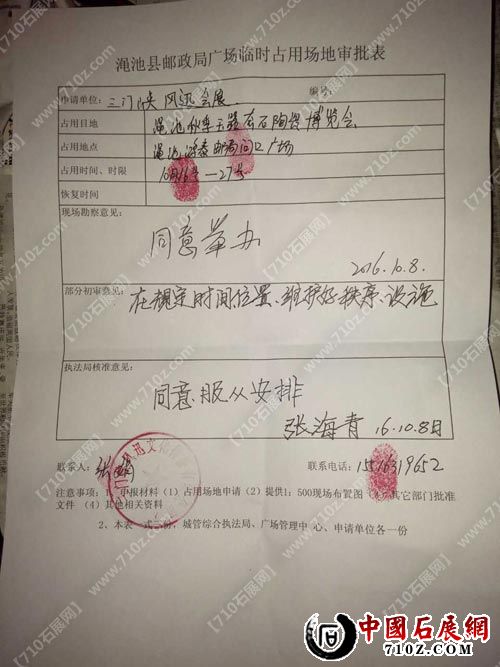 渑池县邮政局广场临时占用场地审批表
申请单位：三门陕风迅会展
占用目地 渑池秋季玉器奇石陶瓷博览会
占用地点 渑池 邮局门口广场
占用时间、时限 10月16号—27号
恢复时间
现场勘察意见：
同意举办
2016.10.8.
部分初审意见：在规定时间位置、维护好秩序、设施
执法局核准意见：
同意服从安排
张海青 16.10.8日
联系人：张
联系电话：15516319652
注意事项：1、申报材料（1）占用场地申请（2）提供1：500现场布置图 其它部门批准
文件 （4）其他相关资料
2、本表一式三份，城管综合执法局、广场管理中 心、申请单位各一份
【710石展网】
www.710z.com
中國石展網
710Z.COM